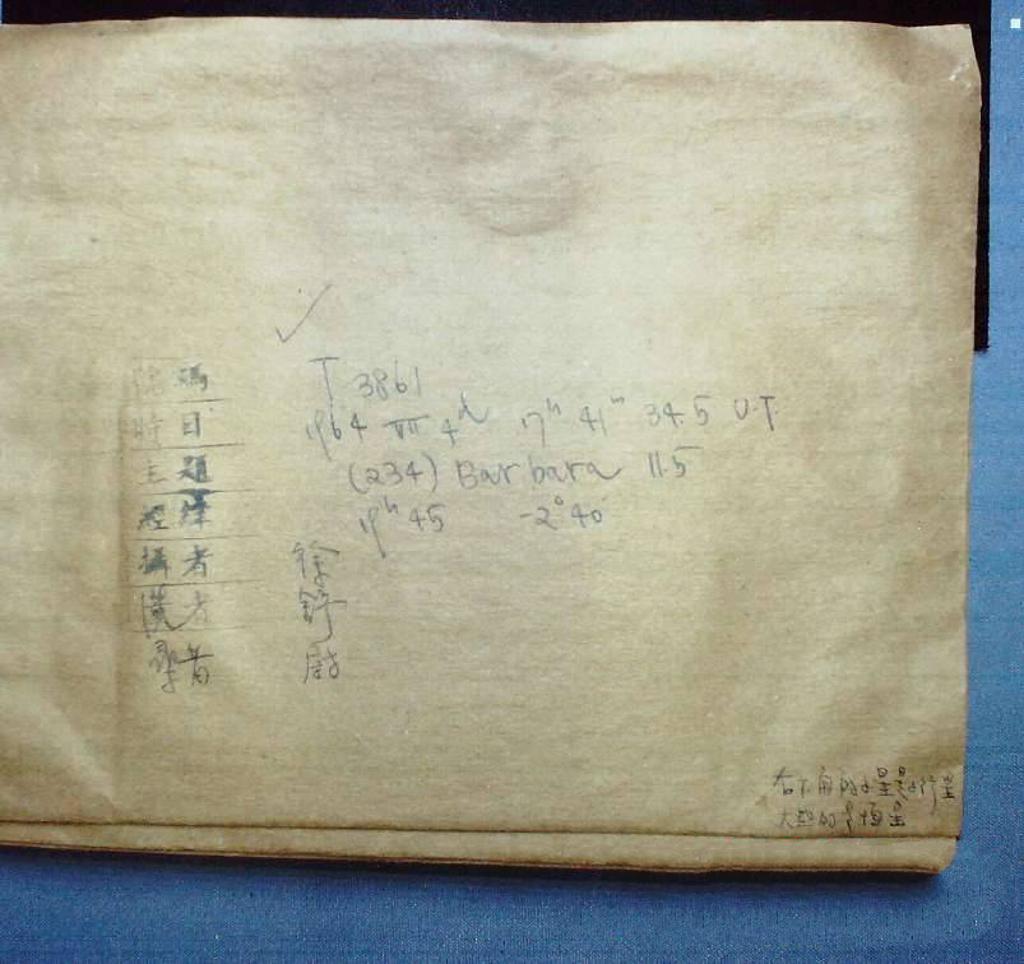 號碼 T 3861
時日 1964 VII 4ᵈ 17ʰ 41ᵐ 34.5 U.T.
主題 (234) Barbara 11.5
經緯 19ʰ 45 -2°40
攝者 徐
者 舒
者 尉
右下角的小星是小行星
大些的是恒星